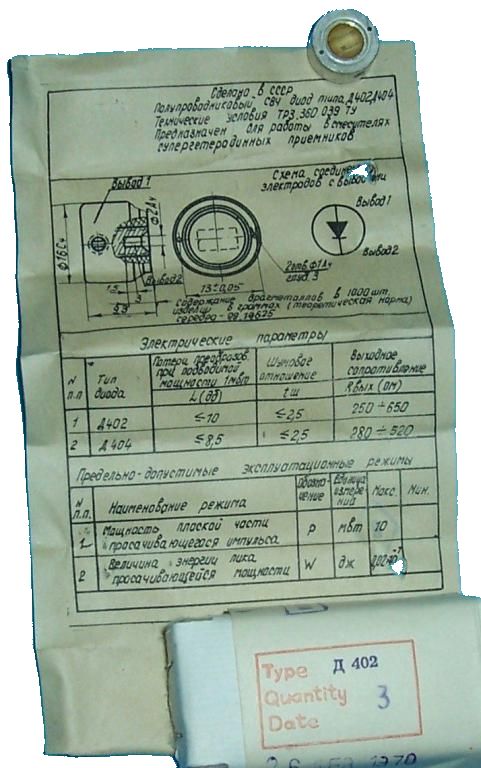 Сделано в СССР
Полупроводниковый СВЧ диод типа Д402, Д404
Технические условия ТР3.360.039 ТУ
Предназначен для работы в смесителях
супергетеродинных приемников
Схема
электродов с
Вывод 1
Вывод 1
Вывод 2
Вывод 2
13±0,05
2 отв. Ф1А4
глуб. 3
содержание драгметаллов в 1000 шт.
изделий в граммах (теоретическая норма)
серебро - 98,19675
Электрические параметры
N п.п Тип диода Потери преобразов. при подводимой мощности 1мвт L(дб) Шумовое отношение tш Выходное сопротивление Rвых (ом)
1 Д402 ≤10 ≤2,5 250÷650
2 Д404 ≤8,5 ≤2,5 280÷520
Предельно-допустимые эксплуатационные режимы
N п.п. Наименование режима Обозначение Единица измерений Макс. Мин.
1 Мощность плоской части просачивающегося импульса P мвт 10
2 Величина энергии пика просачивающейся мощности W дж
Type Д 402
Quantity 3
Date
1970